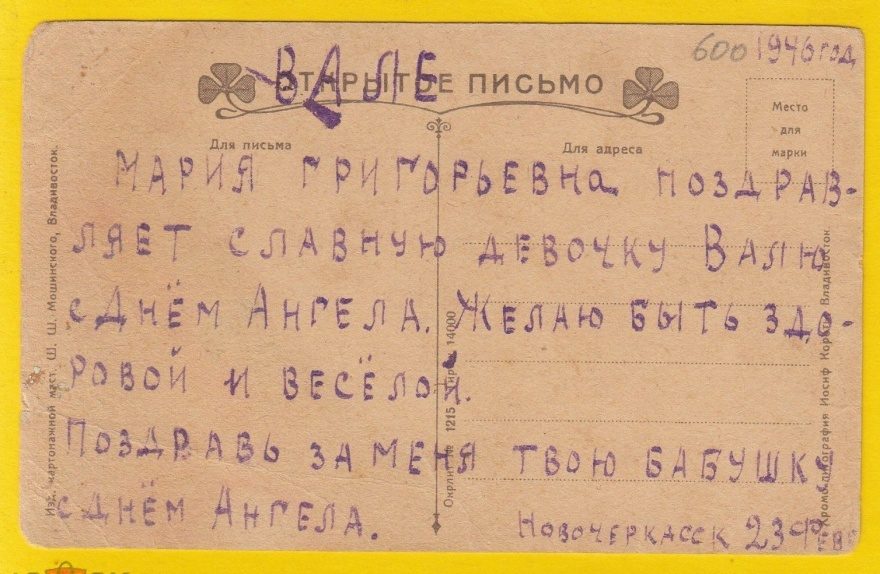 600 1946 год
ВАЛЕ
ОТКРЫТОЕ ПИСЬМО
Место
для
марки
Для письма
Для адреса
МАРИЯ ГРИГОРЬЕВНа ПОЗДРАВ-
ЛЯЕТ СЛАВНУЮ ДЕВОЧКУ ВАЛЮ
с ДНЁМ АНГЕЛА. ЖЕЛАЮ БЫТЬ ЗДО-
РОВОЙ И ВЕСЁЛОЙ.
ПОЗДРАВЬ ЗА МЕНЯ ТВОЮ БАБУШКУ
с ДНЁМ АНГЕЛА.
НОВОЧЕРКАССК 23 ФЕВ
Изд. картонажной маст. Ш. Ш. Мошинского, Владивосток.
Окрлит № 1215 Тираж 14000
Хромолитография Иосиф Коротъ Владивосток